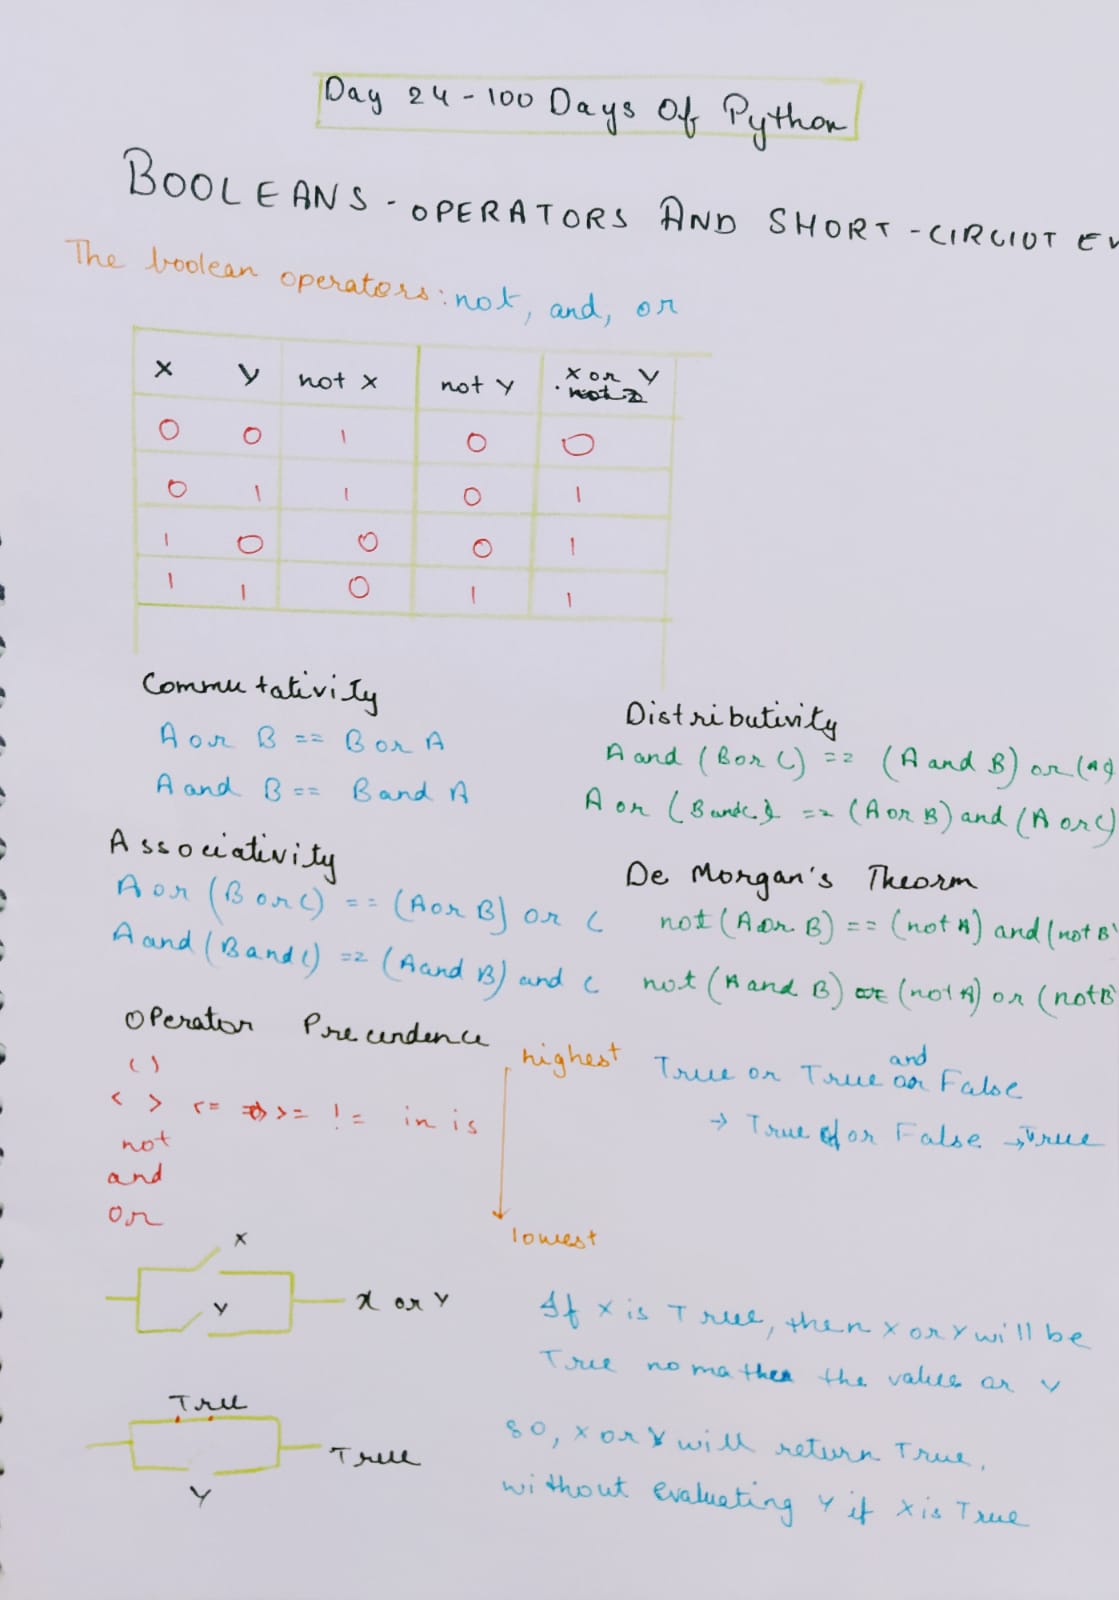 Day 24 - 100 Days Of Python
BOOLEANS - OPERATORS AND SHORT - CIRCIUT EV
The boolean operators: not, and, or
X Y not X not Y X or Y
0 0 1 0 0
0 1 1 0 1
1 0 0 0 1
1 1 0 1 1
Commutativity
A or B == B or A
A and B == B and A
Distributivity
A and (B or C) == (A and B) or (A
A or (B and C) == (A or B) and (A or C)
Associativity
A or (B or C) == (A or B) or C
A and (B and C) == (A and B) and C
De Morgan's Theorm
not (A or B) == (not A) and (not B
not (A and B) == (not A) or (not B
Operator Precendence
()
< > <= => >= != in is
not
and
or
highest
lowest
True or True and False
→ True or False → True
X
Y
X or Y
If X is True, then X or Y will be
True no mather the value or Y
True
True
Y
so, X or Y will return True,
without evaluating Y if X is True